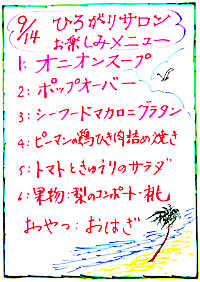 9/14 ひろがりサロン
お楽しみメニュー
1: オニオンスープ
2: ポップオーバー
3: シーフードマカロニグラタン
4: ピーマンの鶏ひき肉詰め焼き
5: トマトときゅうりのサラダ
6: 果物: 梨のコンポート・桃
おやつ: おはぎ